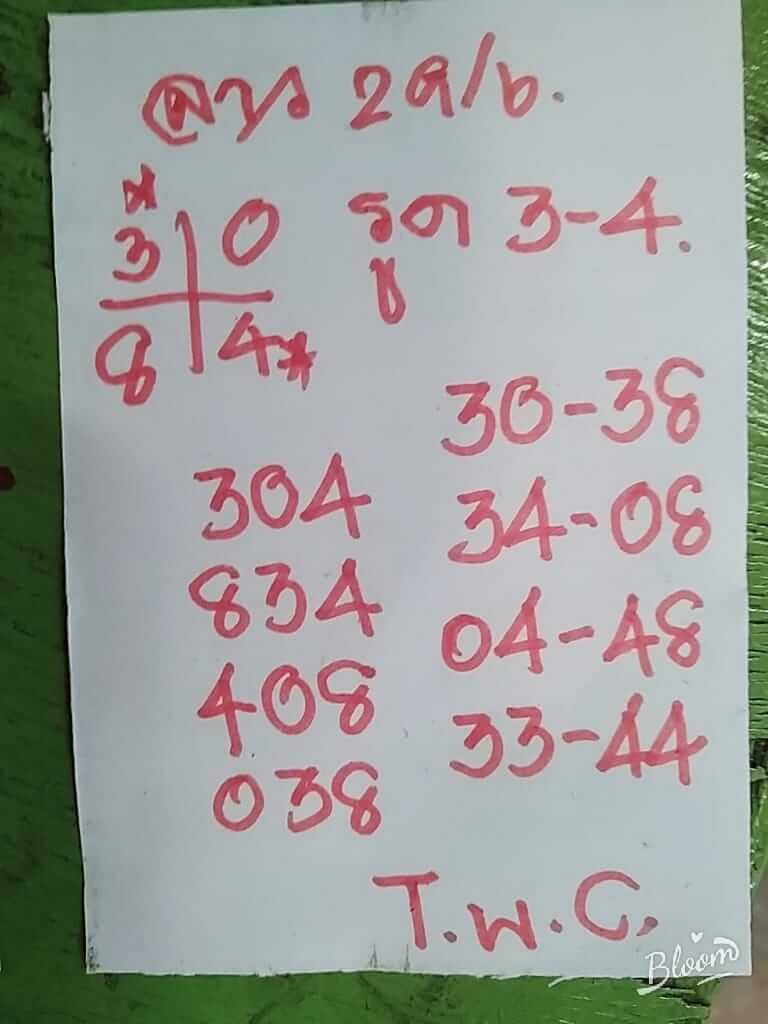 ลาว 29/6.
* 3 | 0 รูด 3-4.
8 | 4 *
30-38
304 34-08
834 04-48
408 33-44
038
T.W.C.
Bloom